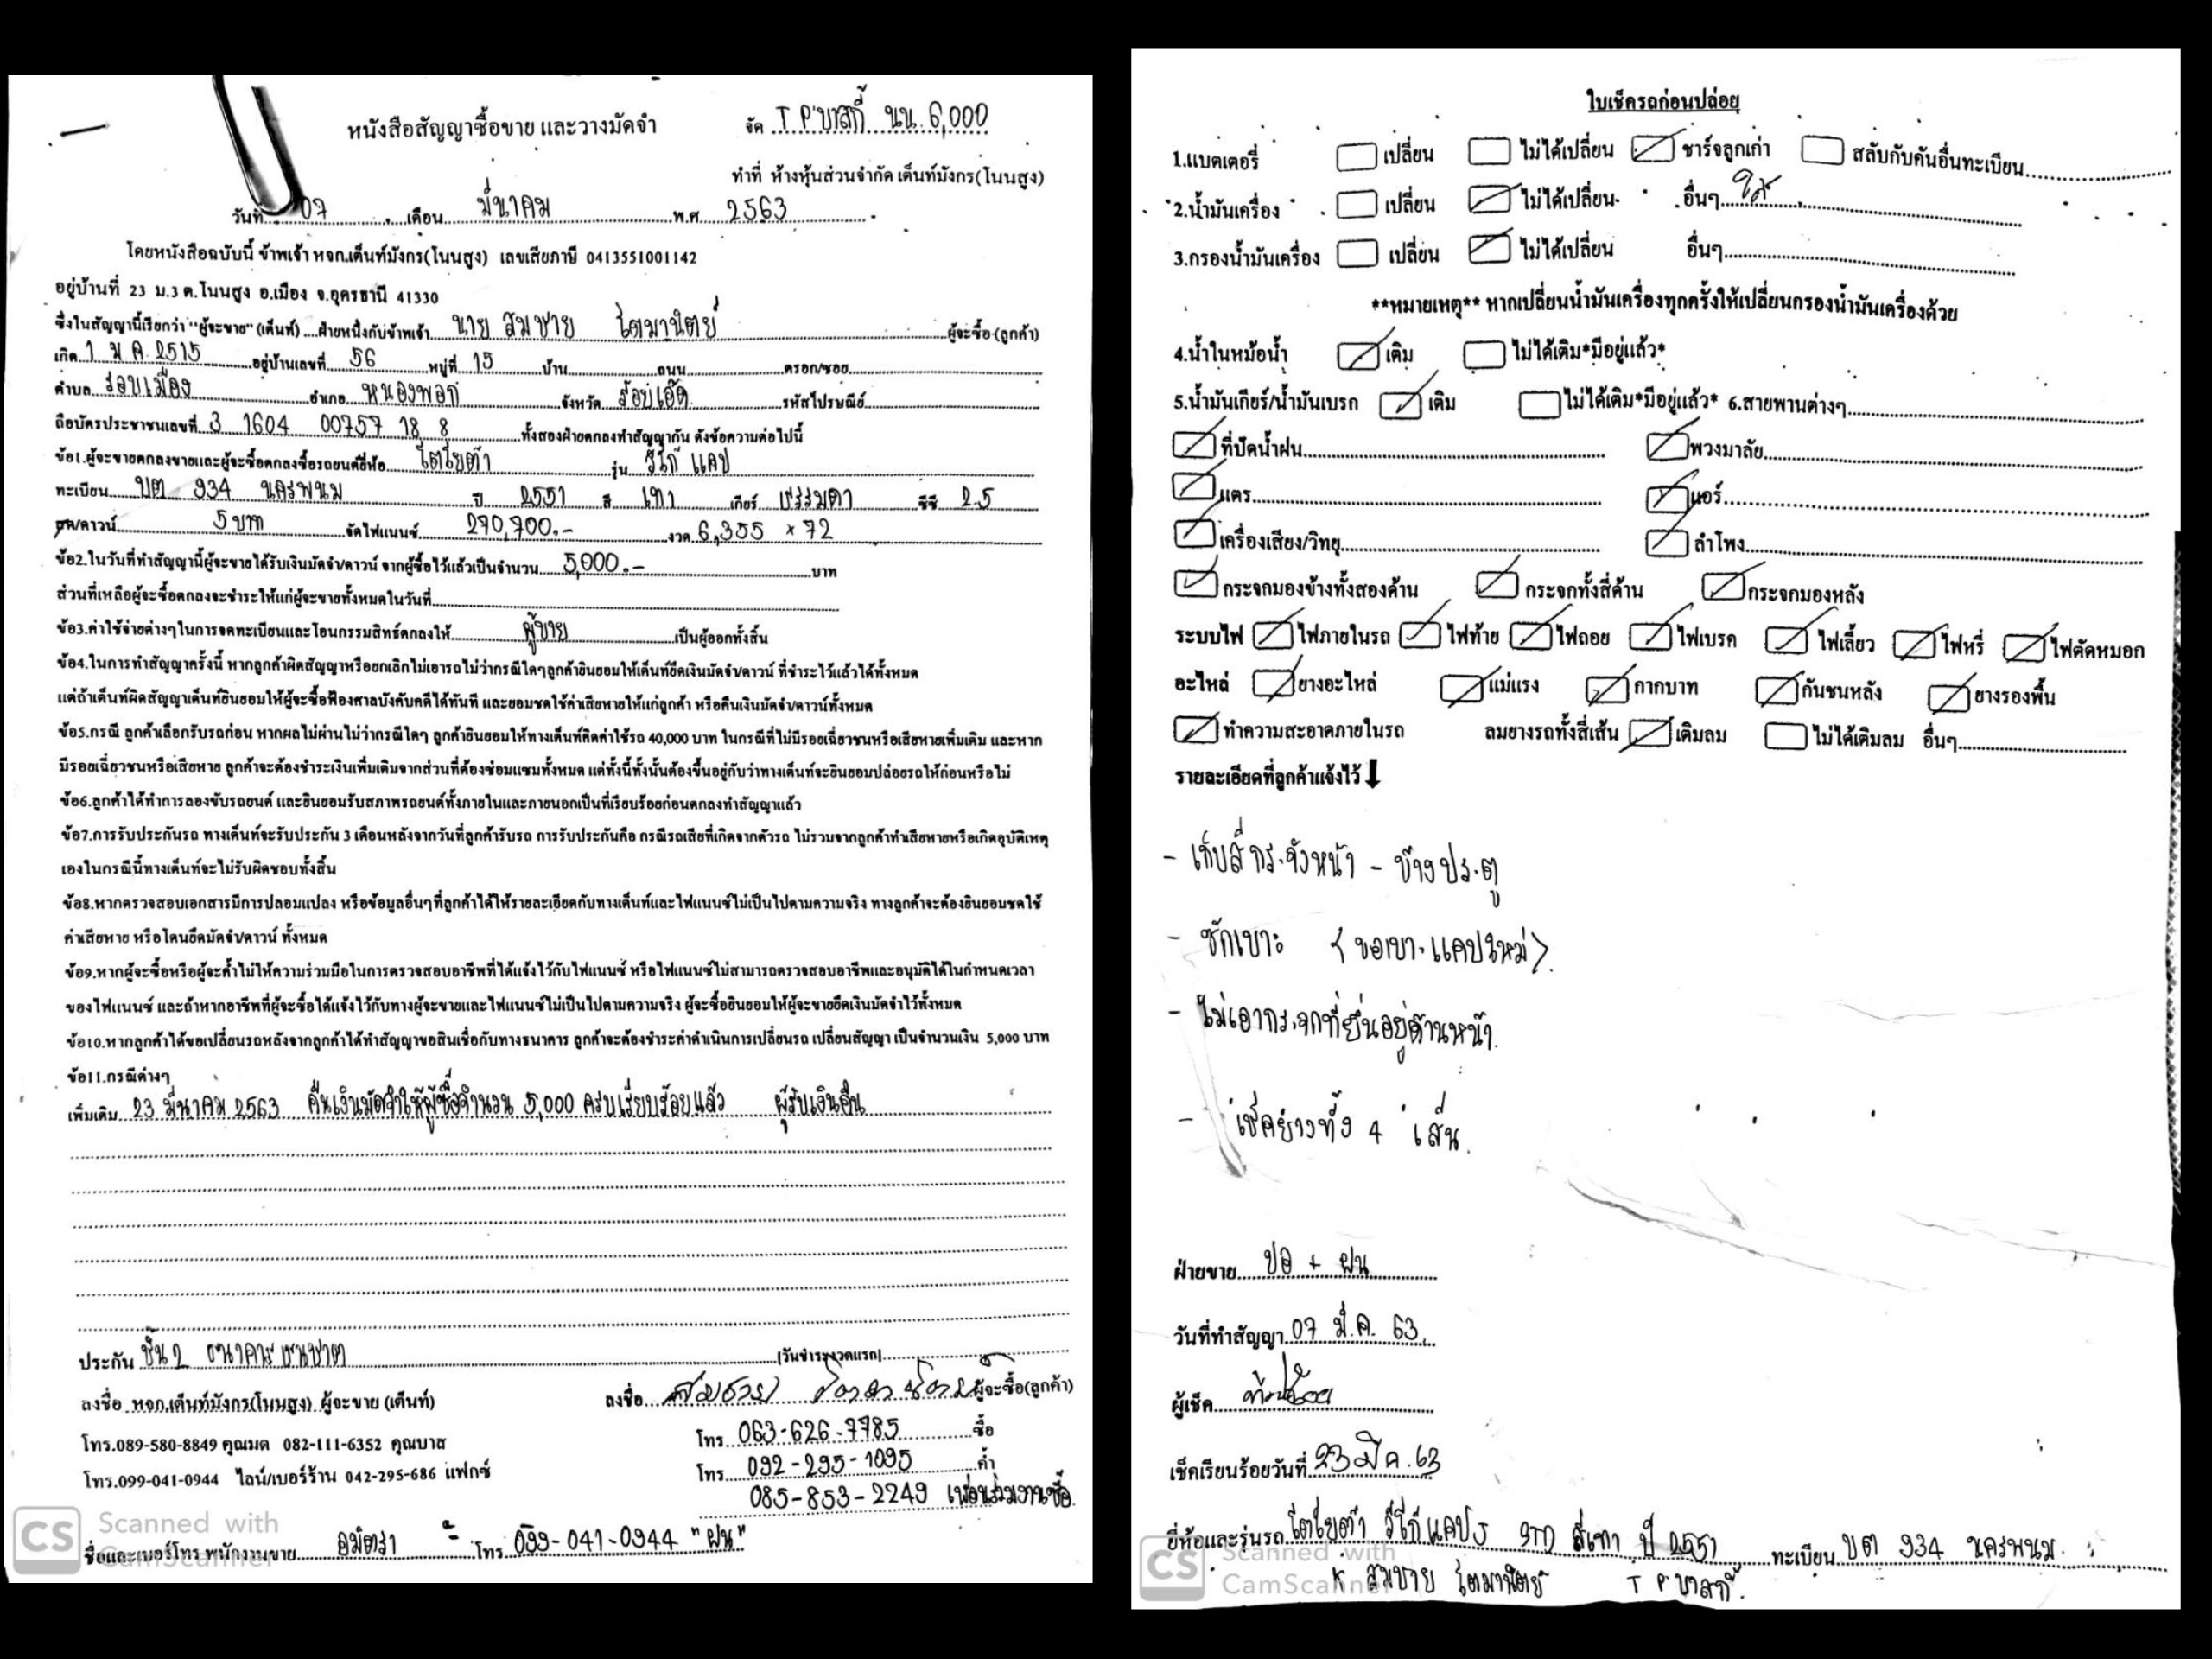 หนังสือสัญญาซื้อขาย และวางมัดจำ
จัด T P บาสกี้ นน 6,000
ทำที่ ห้างหุ้นส่วนจำกัด เต็นท์มังกร(โนนสูง)
วันที่ 07 เดือน มีนาคม พ.ศ. 2563
โดยหนังสือฉบับนี้ ข้าพเจ้า หจก.เต็นท์มังกร(โนนสูง) เลขเสียภาษี 0413551001142
อยู่บ้านที่ 23 ม.3 ต.โนนสูง อ.เมือง จ.อุดรธานี 41330
ซึ่งในสัญญานี้เรียกว่า "ผู้จะขาย" (เต็นท์) ....ฝ่ายหนึ่งกับข้าพเจ้า นาย สมชาย โตมานิตย์ ผู้จะซื้อ (ลูกค้า)
เกิด 1 ม.ค. 2515 อยู่บ้านเลขที่ 56 หมู่ที่ 15 บ้าน ถนน ตรอก/ซอย
ตำบล รอบเมือง อำเภอ หนองพอก จังหวัด ร้อยเอ็ด รหัสไปรษณีย์
ถือบัตรประชาชนเลขที่ 3 1604 00757 18 8 ทั้งสองฝ่ายตกลงทำสัญญากัน ดังข้อความต่อไปนี้
ข้อ1.ผู้จะขายตกลงขายและผู้จะซื้อตกลงซื้อรถยนต์ยี่ห้อ โตโยต้า รุ่น วีโก้ แคป
ทะเบียน บต 934 นครพนม ปี 2551 สี เทา เกียร์ ธรรมดา ซีซี 2.5
/ดาวน์ 5 บาท จัดไฟแนนซ์ 270,700.- งวด 6,355 × 72
ข้อ2.ในวันที่ทำสัญญานี้ผู้จะขายได้รับเงินมัดจำ/ดาวน์ จากผู้ซื้อไว้แล้วเป็นจำนวน 5,000.- บาท
ส่วนที่เหลือผู้จะซื้อตกลงจะชำระให้แก่ผู้จะขายทั้งหมดในวันที่
ข้อ3.ค่าใช้จ่ายต่างๆในการจดทะเบียนและโอนกรรมสิทธ์ตกลงให้ ผู้ขาย เป็นผู้ออกทั้งสิ้น
ข้อ4.ในการทำสัญญาครั้งนี้ หากลูกค้าผิดสัญญาหรือยกเลิกไม่เอารถไม่ว่ากรณีใดๆลูกค้ายินยอมให้เต็นท์ยึดเงินมัดจำ/ดาวน์ ที่ชำระไว้แล้วได้ทั้งหมด
แต่ถ้าเต็นท์ผิดสัญญาเต็นท์ยินยอมให้ผู้จะซื้อฟ้องศาลบังคับคดีได้ทันที และยอมชดใช้ค่าเสียหายให้แก่ลูกค้า หรือคืนเงินมัดจำ/ดาวน์ทั้งหมด
ข้อ5.กรณี ลูกค้าเลือกรับรถก่อน หากผลไม่ผ่านไม่ว่ากรณีใดๆ ลูกค้ายินยอมให้ทางเต็นท์คิดค่าใช้รถ 40,000 บาท ในกรณีที่ไม่มีรอยเฉี่ยวชนหรือเสียหายเพิ่มเติม และหาก
มีรอยเฉี่ยวชนหรือเสียหาย ลูกค้าจะต้องชำระเงินเพิ่มเติมจากส่วนที่ต้องซ่อมแซมทั้งหมด แต่ทั้งนี้ทั้งนั้นต้องขึ้นอยู่กับว่าทางเต็นท์จะยินยอมปล่อยรถให้ก่อนหรือไม่
ข้อ6.ลูกค้าได้ทำการลองขับรถยนต์ และยินยอมรับสภาพรถยนต์ทั้งภายในและภายนอกเป็นที่เรียบร้อยก่อนตกลงทำสัญญาแล้ว
ข้อ7.การรับประกันรถ ทางเต็นท์จะรับประกัน 3 เดือนหลังจากวันที่ลูกค้ารับรถ การรับประกันคือ กรณีรถเสียที่เกิดจากตัวรถ ไม่รวมจากลูกค้าทำเสียหายหรือเกิดอุบัติเหตุ
เองในกรณีนี้ทางเต็นท์จะไม่รับผิดชอบทั้งสิ้น
ข้อ8.หากตรวจสอบเอกสารมีการปลอมแปลง หรือข้อมูลอื่นๆที่ลูกค้าได้ให้รายละเอียดกับทางเต็นท์และไฟแนนซ์ไม่เป็นไปตามความจริง ทางลูกค้าจะต้องยินยอมชดใช้
ค่าเสียหาย หรือโดนยึดมัดจำ/ดาวน์ ทั้งหมด
ข้อ9.หากผู้จะซื้อหรือผู้จะค้ำไม่ให้ความร่วมมือในการตรวจสอบอาชีพที่ได้แจ้งไว้กับไฟแนนซ์ หรือไฟแนนซ์ไม่สามารถตรวจสอบอาชีพและอนุมัติได้ในกำหนดเวลา
ของไฟแนนซ์ และถ้าหากอาชีพที่ผู้จะซื้อได้แจ้งไว้กับทางผู้จะขายและไฟแนนซ์ไม่เป็นไปตามความจริง ผู้จะซื้อยินยอมให้ผู้จะขายยึดเงินมัดจำไว้ทั้งหมด
ข้อ10.หากลูกค้าได้ขอเปลี่ยนรถหลังจากลูกค้าได้ทำสัญญาขอสินเชื่อกับทางธนาคาร ลูกค้าจะต้องชำระค่าดำเนินการเปลี่ยนรถ เปลี่ยนสัญญา เป็นจำนวนเงิน 5,000 บาท
ข้อ11.กรณีต่างๆ
เพิ่มเติม 23 มีนาคม 2563 คืนเงินมัดจำให้ผู้ซื้อจำนวน 5,000 ครบเรียบร้อยแล้ว ผู้รับเงินคืน
ประกัน ชั้น 2 ธนาคารธนชาต (วันชำระงวดแรก)
ลงชื่อ หจก.เต็นท์มังกร(โนนสูง) ผู้จะขาย (เต็นท์) ลงชื่อ สมชาย ผู้จะซื้อ(ลูกค้า)
โทร.089-580-8849 คุณมด 082-111-6352 คุณบาส โทร 063-626-7785 ซื้อ
โทร.099-041-0944 ไลน์/เบอร์ร้าน 042-295-686 แฟกซ์ โทร 092-295-1095 ค้ำ
085-853-2249 เพื่อนร่วมงานซื้อ
ชื่อและเบอร์โทร พนักงานขาย อมิตรา โทร 099-041-0944 "ฝน"
CS Scanned with CamScanner
ใบเช็ครถก่อนปล่อย
1.แบตเตอรี่ เปลี่ยน ไม่ได้เปลี่ยน ชาร์จลูกเก่า สลับกับคันอื่นทะเบียน
2.น้ำมันเครื่อง เปลี่ยน ไม่ได้เปลี่ยน อื่นๆ
3.กรองน้ำมันเครื่อง เปลี่ยน ไม่ได้เปลี่ยน อื่นๆ
**หมายเหตุ** หากเปลี่ยนน้ำมันเครื่องทุกครั้งให้เปลี่ยนกรองน้ำมันเครื่องด้วย
4.น้ำในหม้อน้ำ เติม ไม่ได้เติม*มีอยู่แล้ว*
5.น้ำมันเกียร์/น้ำมันเบรก เติม ไม่ได้เติม*มีอยู่แล้ว* 6.สายพานต่างๆ
ที่ปัดน้ำฝน พวงมาลัย
แตร แอร์
เครื่องเสียง/วิทยุ ลำโพง
กระจกมองข้างทั้งสองด้าน กระจกทั้งสี่ด้าน กระจกมองหลัง
ระบบไฟ ไฟภายในรถ ไฟท้าย ไฟถอย ไฟเบรค ไฟเลี้ยว ไฟหรี่ ไฟตัดหมอก
อะไหล่ ยางอะไหล่ แม่แรง กากบาท กันชนหลัง ยางรองพื้น
ทำความสะอาดภายในรถ ลมยางรถทั้งสี่เส้น เติมลม ไม่ได้เติมลม อื่นๆ
รายละเอียดที่ลูกค้าแจ้งไว้
- เก็บสีกระจังหน้า - ข้างประตู
- ซักเบาะ < ขอเบาะแคปใหม่ >
- ไม่เอากระจกที่ยื่นอยู่ด้านหน้า.
- เช็คยางทั้ง 4 เส้น.
ฝ่ายขาย ปอ + ฝน
วันที่ทำสัญญา 07 มี.ค. 63
ผู้เช็ค
เช็คเรียบร้อยวันที่ 23 มี.ค. 63
ยี่ห้อและรุ่นรถ โตโยต้า วีโก้แคป J STD สีเทา ปี 2551 ทะเบียน บต 934 นครพนม
K. สมชาย โตมานิตย์ T P บาสกี้.
CS Scanned with CamScanner